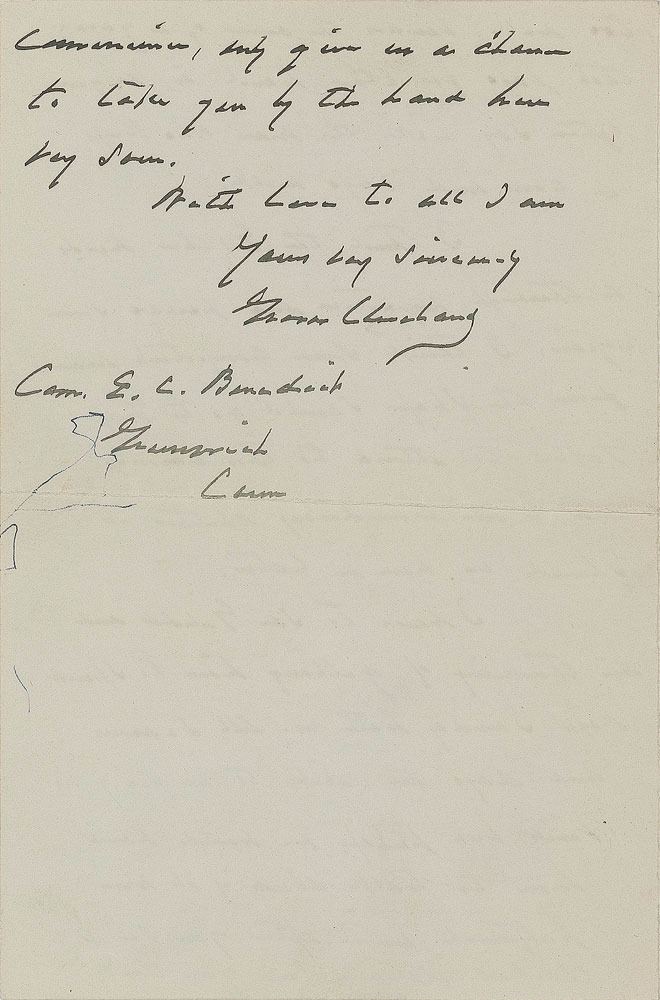 Convenience, only give us a chance
to take you by the hand here
very soon.
With love to all I am
Yours very sincerely
Grover Cleveland
Com. E. C. Benedict
Greenwich
Conn